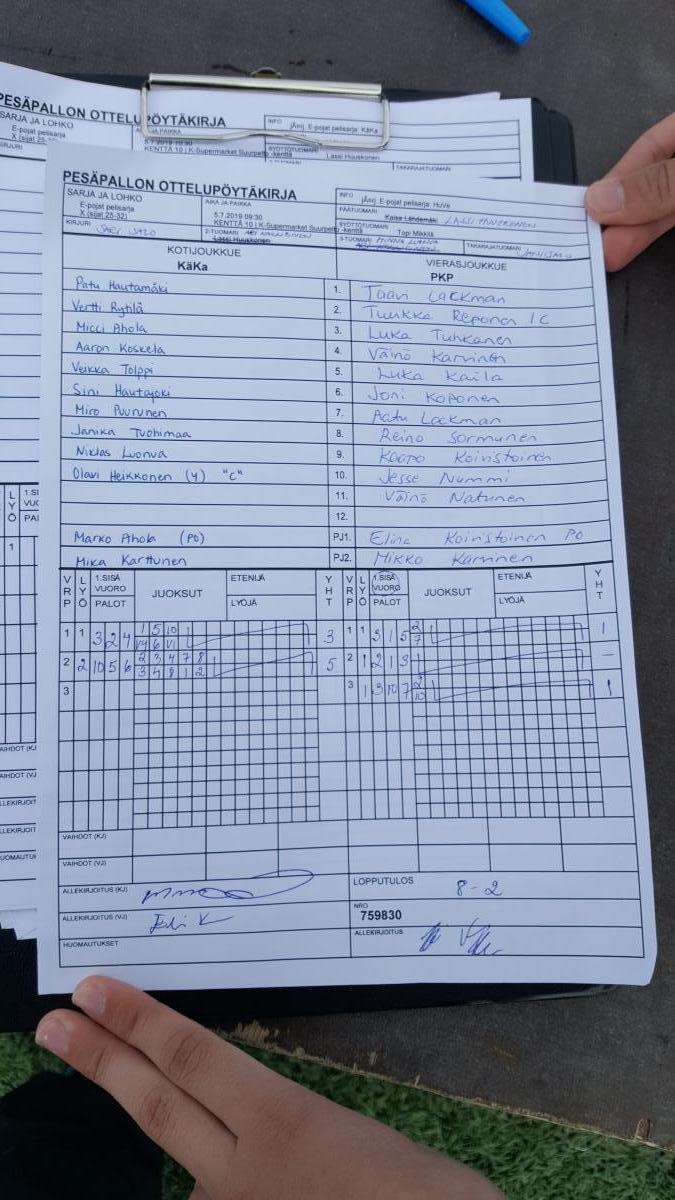 PESÄPALLON OTTELUPÖYTÄKIRJA
SARJA JA LOHKO
E-pojat pelisarja
AIKA JA PAIKKA
5.7.2019 09:30
KENTTÄ 10 | K-Supermarket Suurpelto -kenttä
INFO
jÄnj. E-pojat pelisarja: KäKa
SYÖTTÖTUOMARI
Lassi Huuskonen
TAKARAJATUOMARI
PESÄPALLON OTTELUPÖYTÄKIRJA
SARJA JA LOHKO
E-pojat pelisarja
X (sijat 25-32)
AIKA JA PAIKKA
5.7.2019 09:30
KENTTÄ 10 | K-Supermarket Suurpelto -kenttä
INFO
jÄnj. E-pojat pelisarja: HuVe
PÄÄTUOMARI
Kaisa Lähdemäki LASSI HUUSKONEN
SYÖTTÖTUOMARI
Topi Mikkilä
KIRJURI
2-TUOMARI
Lassi Huuskonen
3-TUOMARI
TAKARAJATUOMARI
KOTIJOUKKUE
KäKa
VIERASJOUKKUE
PKP
Patu Hautamäki 1. Taavi Lackman
Vertti Rytilä 2. Tuukka Reponen 1C
Micci Ahola 3. Luka Tuhkanen
Aaron Koskela 4. Väinö Karvinen
Veikka Tolppi 5. Luka Kaila
Sini Hautajoki 6. Joni Koponen
Miro Puurunen 7. Aatu Lackman
Janika Tuohimaa 8. Reino Sormunen
Niklas Luonua 9. Kaapo Koinstoinen
Olavi Heikkonen (4) "C" 10. Jesse Nummi
11. Väinö Natunen
12.
Marko Ahola (PO) PJ1. Elina Koinstoinen PO
Mika Karttunen PJ2. Mikko Karvinen
VRP LYÖ 1.SISÄ VUORO PALOT JUOKSUT ETENIJÄ LYÖJÄ YHT VRP LYÖ 1.SISÄ VUORO PALOT JUOKSUT ETENIJÄ LYÖJÄ YHT
1 1 3 2 4 1 5 10 3 1 1 3 1 5 2 7 1
2 2 10 5 6 2 3 4 7 8 5 2 1 2 1 3 –
3 4 8 1 2
3 3 1 3 10 7 2 10 1
VAIHDOT (KJ)
VAIHDOT (VJ)
ALLEKIRJOITUS (KJ)
LOPPUTULOS 8-2
ALLEKIRJOITUS (VJ)
NRO
759830
HUOMAUTUKSET
ALLEKIRJOITUS